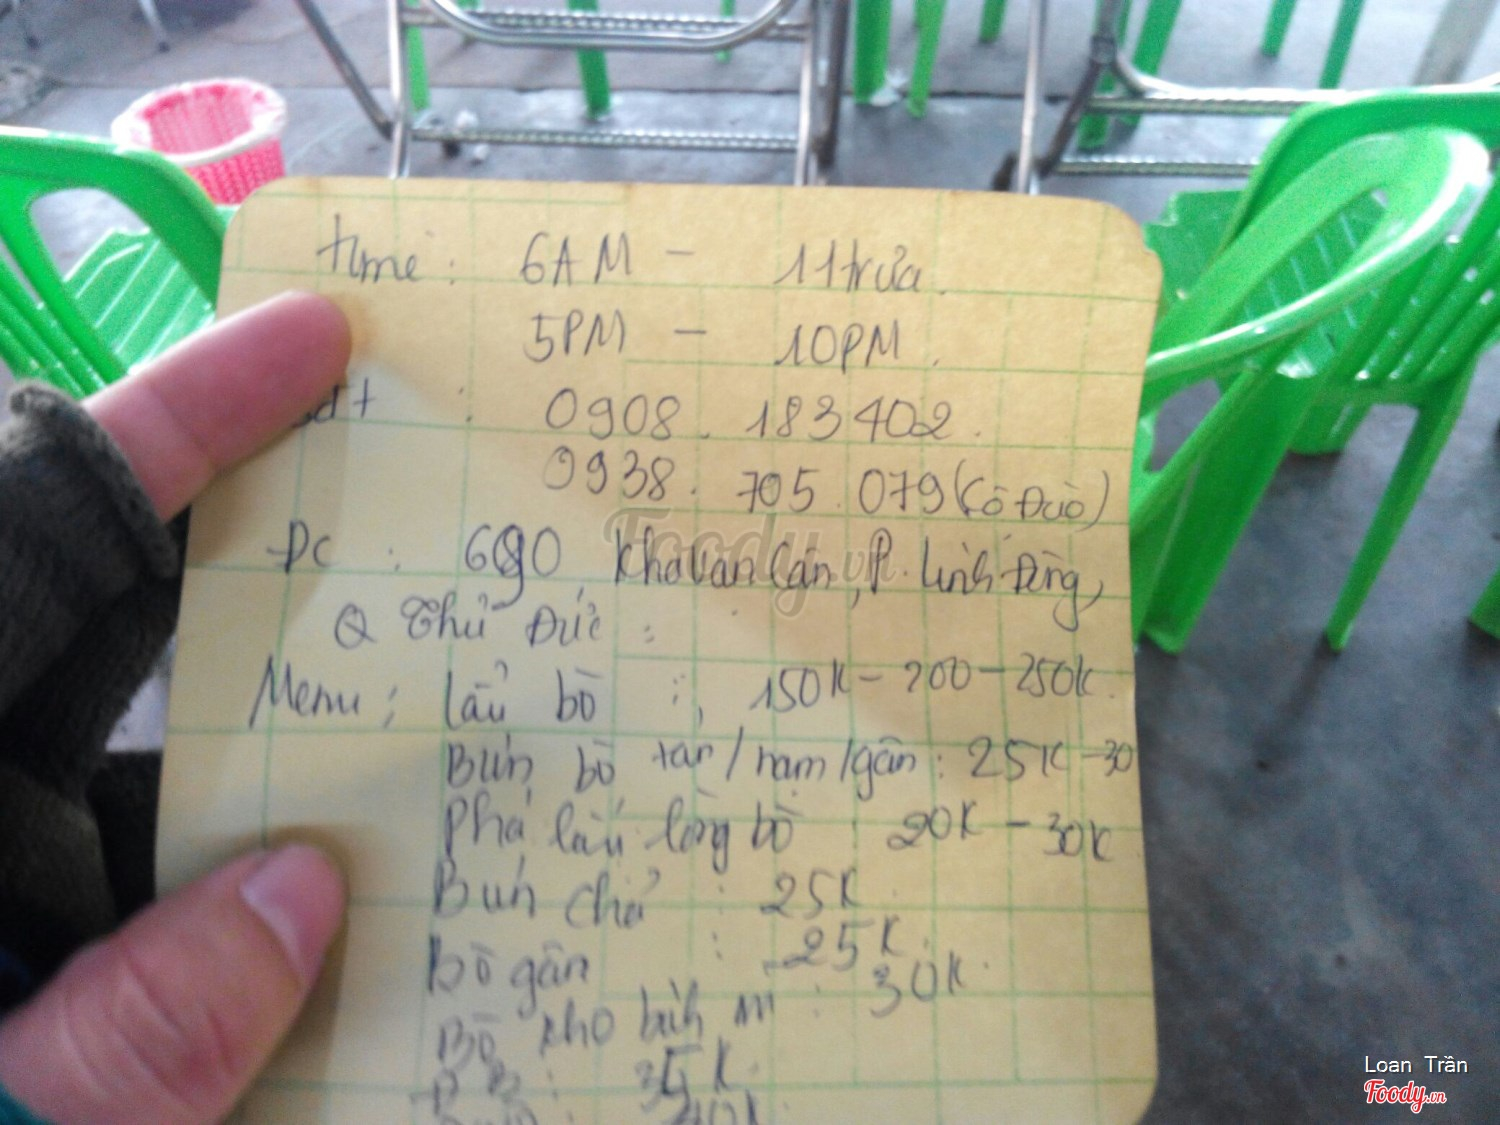 time: 6AM - 11 trưa.
5PM - 10PM.
sdt : 0908. 183402.
0938. 705.079 (Cô Đuò)
ĐC : 690, Kha Vạn Cân, P. Linh Đông,
Q Thủ Đức :
Menu: Lẩu bò : 150K - 200 - 250K.
Bún bò tái/nạm/gân: 25K - 30
Phá lấu lòng bò : 20K - 30K
Bún chả : 25K.
Bò gân : 25K.
Bò kho bánh mì : 30K.
35K.
Foody.vn
Loan Trần
Foody.vn